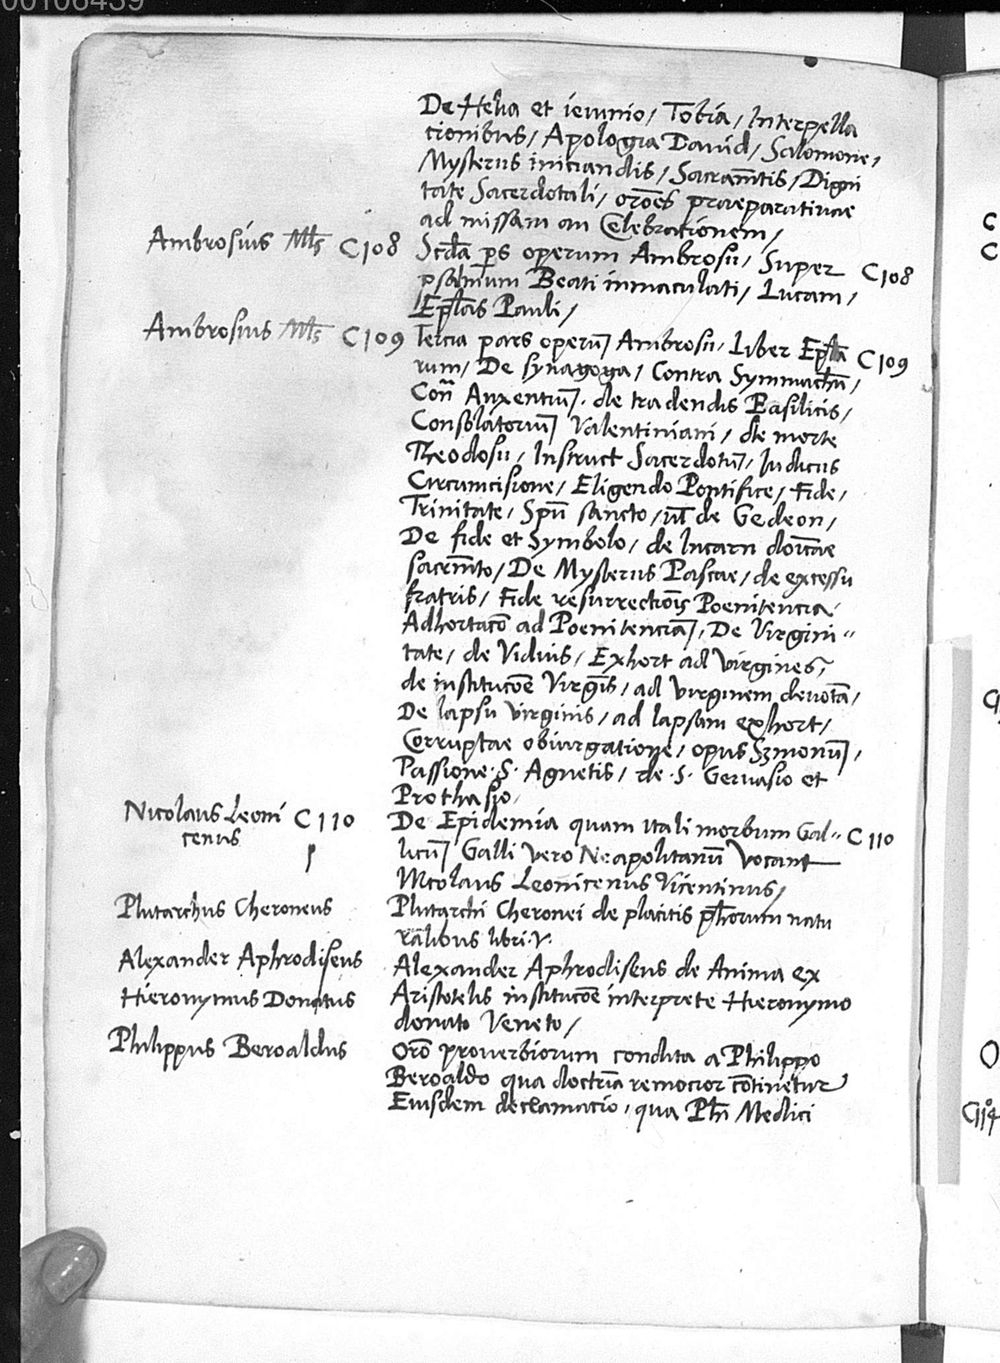 00106439
De Helia et ieiunio / Tobia / Interpella
tionibus / Apologia Dauid / Salomone /
Mysteriis iniciandis / Sacram̄tis / Digni
tate Sacerdotali / orōes praeparatiuae
ad missam an Celebrationem /
Ambrosius C108 Scd̄a ps operum Ambrosii / Super C108
psalmum Beati inmaculati / Lucam /
Epl̄as Pauli /
Ambrosius C109 Tercia pars operū Ambrosii / Liber Epl̄a C109
rum / De synagoga / Contra Symmachū /
Con̄ Auxentiū . de tradendis Basilicis /
Consolatoriū Valentiniani / de morte
Theodosii / Instruct Sacerdotū / Iudicus
Circumcisione / Eligendo Pontifice / Fide /
Trinitate / Spū sancto / de Gedeon /
De fide et Symbolo / de Incarn doīcae
sacrm̄to / De Mysteriis Pascae / de excessu
fratris / Fide resurrectiōis Poenitencia .
Adhortacō ad Poenitenciā / De Virgini=
tate / de Viduis / Exhort ad virgines /
de institucōe Virgīs / ad virginem deuotā /
De lapsu virginis / ad lapsam exhort /
Corruptae obiurgatione / opus Sermonū /
Passione . S . Agnetis / de . S . Geruasio et
Prothasio .
Nicolaus Leoni C110 De Epidemia quam itali morbum Gal= C110
cenus licū Galli vero Neapolitanū vocant
Nicolaus Leonicenus Vicentinus /
Plutarchus Cheroneus Plutarchi Cheronei de placitis ph̄orum natu
ralibus libri . V .
Alexander Aphrodiseus Alexander Aphrodiseus de Anima ex
Hieronymus Donatus Aristotelis institucōe interprete Hieronymo
donato Veneto /
Philippus Beroaldus Orō prouerbiorum condita a Philippo
Beroaldo qua doctrīa remocior cōtinetur
Eiusdem declamacio , qua Ph̄i Medici
C114